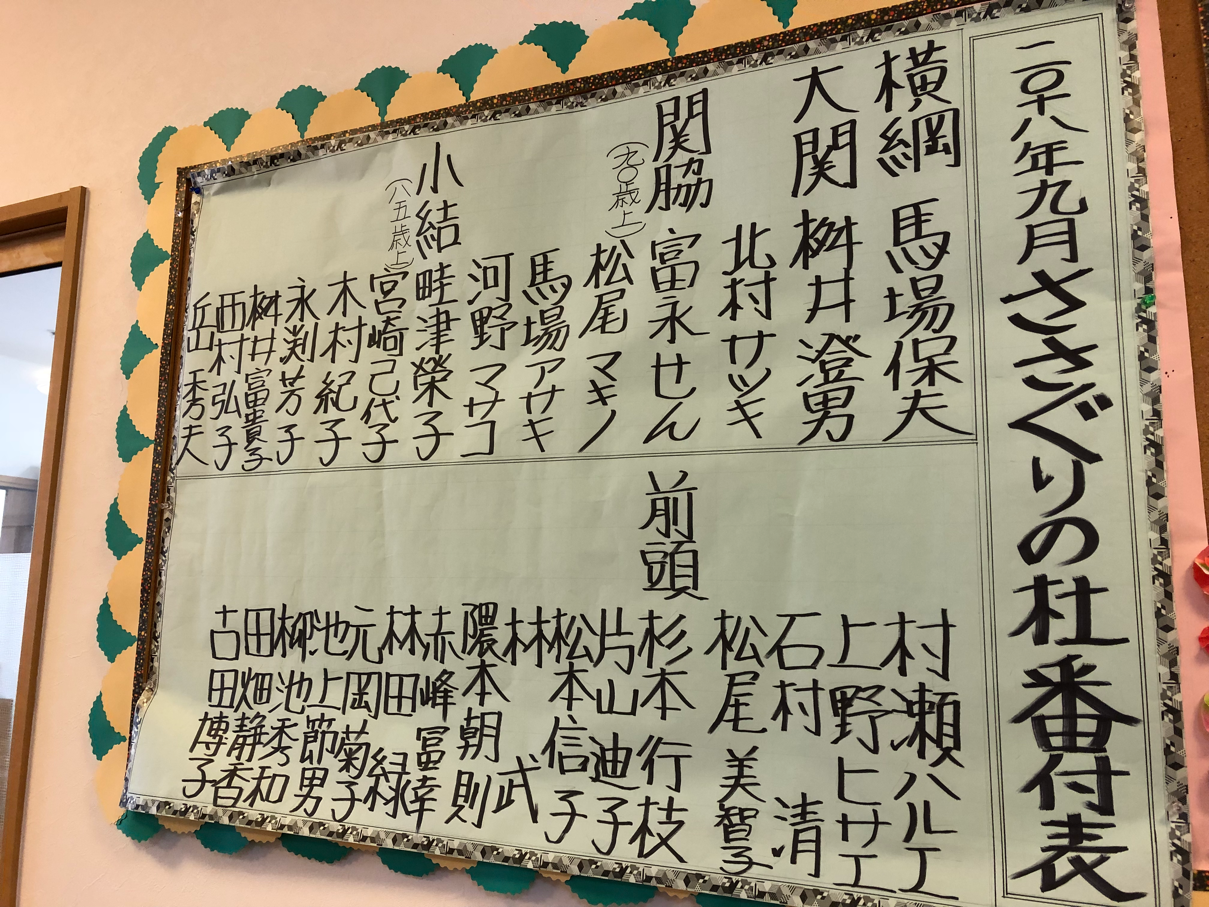 二〇十八年九月 ささぐりの杜番付表
横綱 馬場保夫
大関 桝井澄男
北村サツキ
関脇 富永せん
(九〇歳上) 松尾マキノ
馬場アサキ
河野マサコ
小結 畦津榮子
(八五歳上) 宮崎己代子
木村紀子
永渕芳子
桝井富貴子
西村弘子
丘 秀夫
村瀬ハルエ
上野ヒサエ
石村 清
松尾美智子
前頭 杉本行枝
片山迪子
松本信子
林 武
隈本朝則
赤峰冨幸
林田 緑
元岡菊子
池上節男
柳池秀和
田畑静香
古田博子